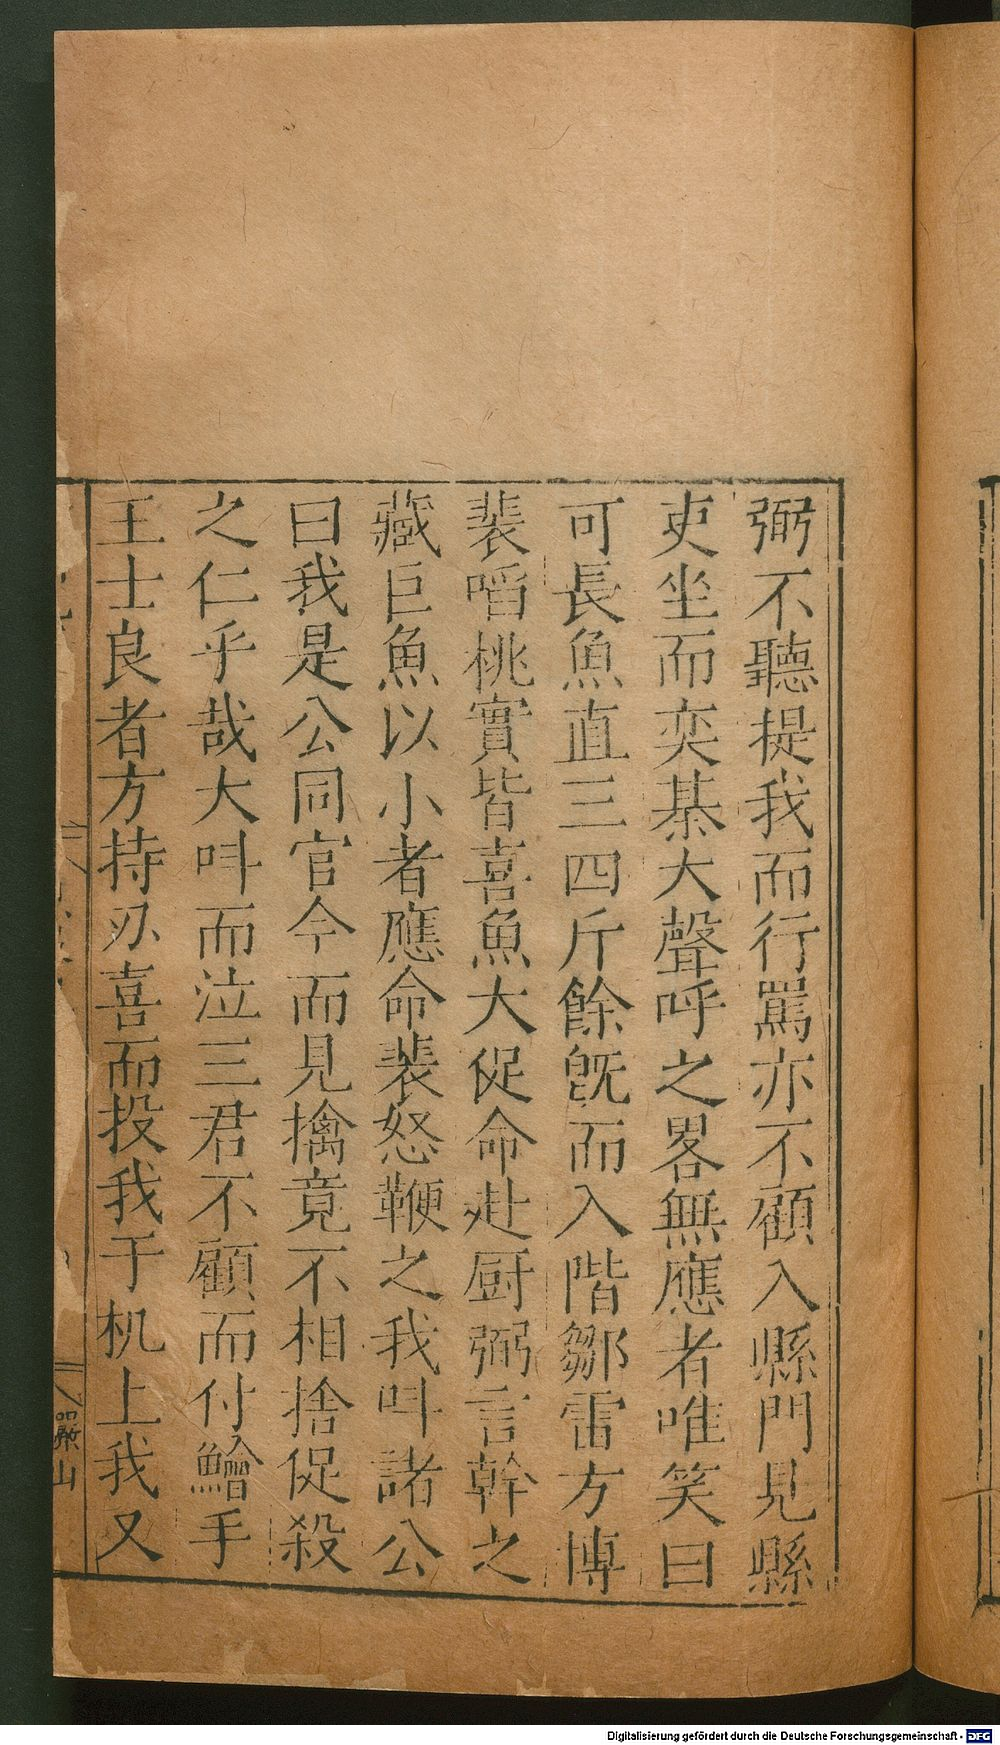 弼不聽提我而行罵亦不顧入縣門見縣
吏坐而奕棊大聲呼之畧無應者唯笑曰
可長魚直三四斤餘旣而入階鄒雷方博
裴啗桃實皆喜魚大促命赴厨弼言幹之
藏巨魚以小者應命裴怒鞭之我呌諸公
曰我是公同官今而見擒竟不相捨促殺
之仁乎哉大呌而泣三君不顧而付鱠手
王士良者方持刃喜而投我于机上我又
嚴山
Digitalisierung gefördert durch die Deutsche Forschungsgemeinschaft - DFG